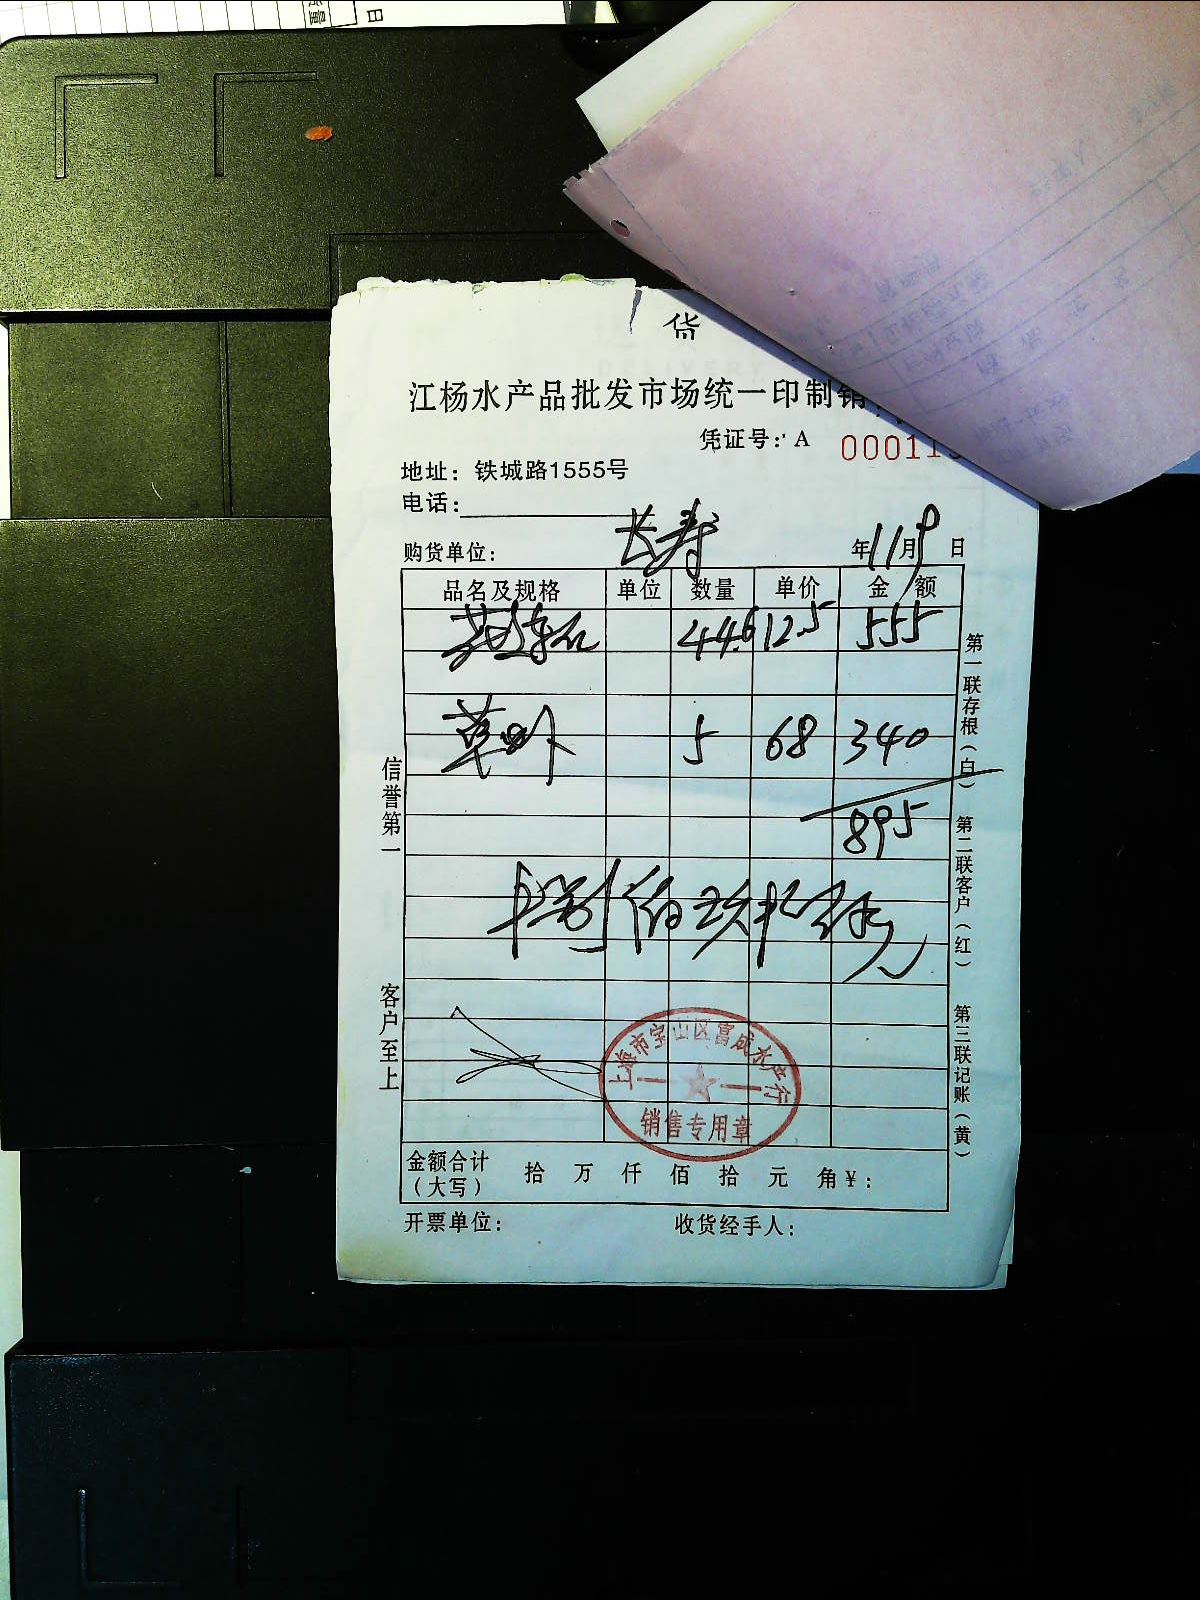 货
江杨水产品批发市场统一印制销
凭证号: A 00011
地址: 铁城路1555号
电话:
购货单位: 长寿 年11月9日
品名及规格 单位 数量 单价 金额
44.6 12.5 555
草虾 5 68 340
895
捌佰玖拾伍元
上海市宝山区富成水产行
销售专用章
金额合计(大写) 拾 万 仟 佰 拾 元 角 ¥:
开票单位: 收货经手人:
信誉第一
客户至上
第一联存根(白)
第二联客户(红)
第三联记账(黄)